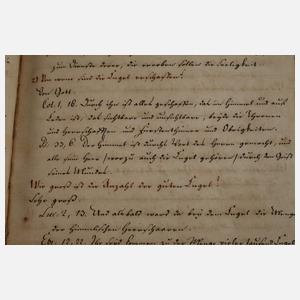 zum Dienste derer, die ererben sollen die Seeligkeit.
2) Von wem sind die Engel erschaffen?
Von Gott.
Col. 1, 16. Durch ihn ist alles geschaffen, das im Himmel und auf
Erden ist, das sichtbare und unsichtbare, beyde die Thronen
und Herrschaften und Fürstenthümer und Obrigkeiten.
Ps. 33, 6. Der Himmel ist durchs Wort des Herrn gemacht, und
alle sein Heer /:worzu auch die Engel gehören:/ durch den Geist
seines Mundes.
Wie groß ist die Anzahl der guten Engel?
Sehr groß.
Luc. 2, 13. Und alsbald ward da bey dem Engel die Menge
der Himmlischen Heerschaaren.
Ebr. 12, 22. Ihr seyd kommen zu der Menge vieler tausend Engel